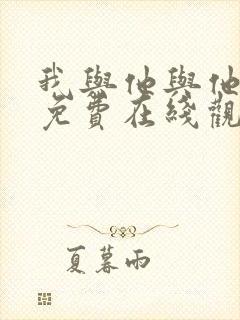 我與他與他
免費在綫觀
夏暮雨